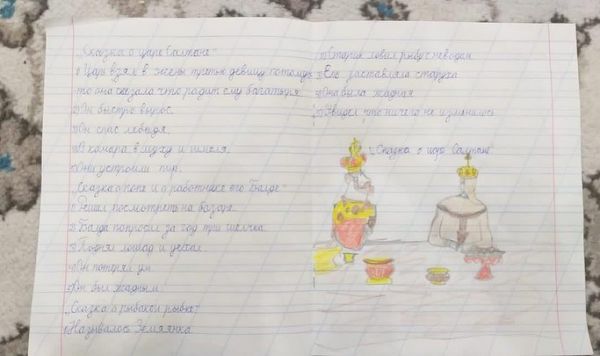 „Сказка о царе Салтане"
1) Царь взял в жены третью девицу потому
что она сказала что родит ему богатыря
2) Он быстро вырос.
3) Он спас лебедя.
4) В комара в муху и шмеля.
5) Они устроили пир.
„Сказка о попе и о работнике его Балде"
1) Решил посмотреть на базаре.
2) Балда попросил за год три щелчка
3) Поднял лошад и уехал
4) Он потерял ум
5) Он был жадным
„Сказка о рыбаке и рыбке"
1) Называлось Землянка
2) Старик ловил рыбу с неводом
3) Его заставляла старуха
4) Она была жадная
5) Увидел что ничего не изменилось
„Сказка о царе Салтане"